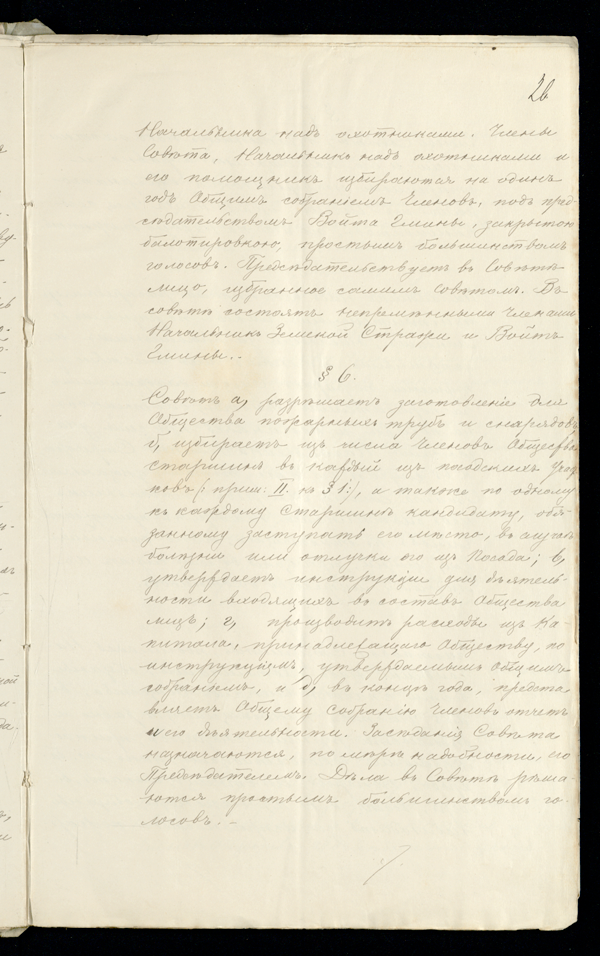 26
Начальника надъ охотниками. Члены
Совѣта, Начальникъ надъ охотниками и
его помощникъ избираются на одинъ
годъ Общимъ собраніемъ Членовъ, подъ пред-
сѣдательствомъ Войта Гмины, закрытою
балотировкою, простымъ большинствомъ
голосовъ. Предсѣдательствуетъ въ Совѣтѣ
лицо, избранное самимъ Совѣтомъ. Въ
совѣтѣ состоятъ непремѣнными Членами
Начальникъ Земской Стражи и Войтъ
Гмины..
§ 6.
Совѣтъ а, разрѣшаетъ заготовленіе для
Общества пожарныхъ трубъ и снарядовъ,
б, избираетъ изъ числа Членовъ Общества
старшинъ въ каждый изъ посадскихъ участ
ковъ (: прим: II. къ § 1:), а также по одному
къ каждому Старшинѣ кандидату, обя-
занному заступать его мѣсто, въ случаѣ
болѣзни или отлучки его изъ Посада; в,
утверждаетъ инструкціи для дѣятель-
ности входящихъ въ составъ Общества
лицъ; г, производитъ расходы изъ Ка-
питала, принадлежащаго Обществу, по
инструкціямъ, утверждаемымъ общимъ
собраніемъ, и д, въ концѣ года, предста
вляетъ Общему Собранію Членовъ отчетъ
о его дѣятельности. Засѣданія Совѣта
назначаются, по мѣрѣ надобности, его
Предсѣдателемъ. Дѣла въ Совѣтѣ рѣша-
ются простымъ большинствомъ го-
лосовъ. –